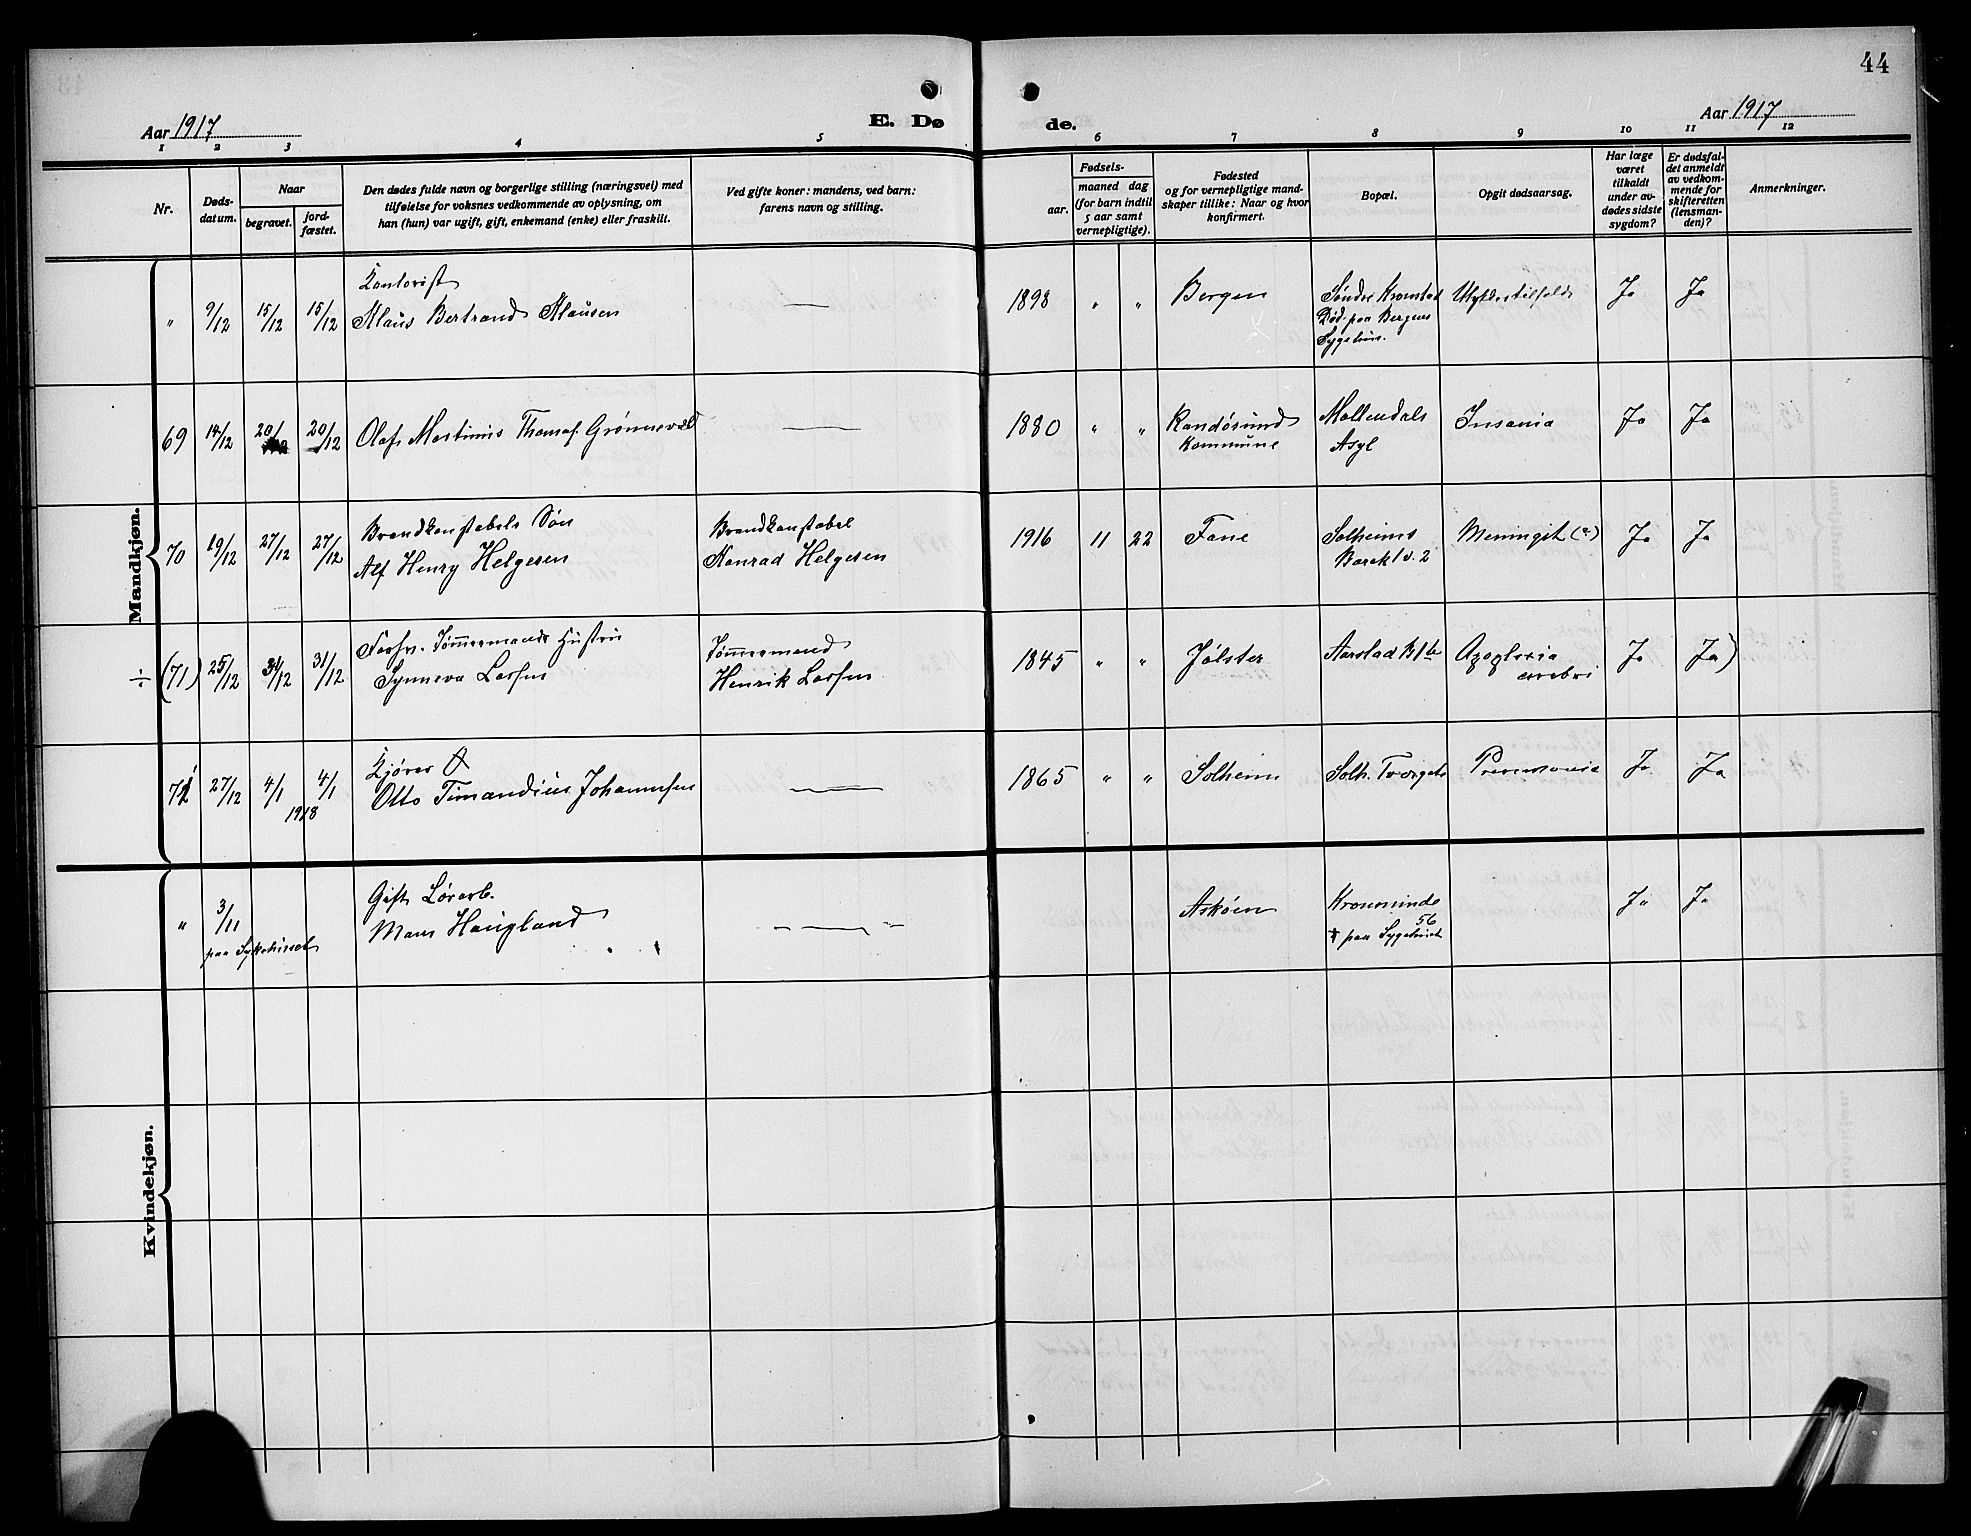 44
Aar 1917
E. Dø
de.
Aar 1917
1 2 3 4 5 6 7 8 9 10 11 12
Nr.
Døds-
datum.
Naar
begravet.
jord-
fæstet.
Den dødes fulde navn og borgerlige stilling (næringsvei) med
tilføielse for voksnes vedkommende av oplysning, om
han (hun) var ugift, gift, enkemand (enke) eller fraskilt.
Ved gifte koner: mandens, ved barn:
farens navn og stilling.
Fødsels-
aar.
maaned dag
(for barn indtil
5 aar samt
vernepligtige).
Fødested
og for vernepligtige mand-
skaper tillike: Naar og hvor
konfirmert.
Bopæl.
Opgit dødsaarsag.
Har læge
været
tilkaldt
under av-
dødes sidste
sygdom?
Er dødsfal-
det anmeldt
av vedkom-
mende for
skifteretten
(lensman-
den)?
Anmerkninger.
Mandkjøn.
Kontorist
" 9/12 15/12 15/12 Klaus Bertrand Klausen — 1898 " " Bergen Søndre Kronstad Ulykkestilfelde Ja Ja
Død paa Bergens
Sygehus.
69 14/12 20/12 20/12 Olaf Martinius Thomas. Grønnevold — 1880 " " Randøsund Møllendals Insania Ja Ja
kommune Asyl
Brandkonstabels Søn Brandkonstabel
70 19/12 27/12 27/12 Alf Henry Helgesen Konrad Helgesen 1916 11 22 Fane Solheims Meningit (?) Ja Ja
Barak 1 v. 2
Forhv. Tømmermands Hustru Tømmermand
÷ (71) 25/12 31/12 31/12 Synneva Larsen Henrik Larsen 1845 " " Jølster Aarstad B 1 b Apoplexia Ja Ja)
cerebri
Kjører
71 27/12 4/1 4/1 Otto Timandius Johannesen — 1865 " " Solheim Solh. Torvgate Pneumonia Ja Ja
1918
Kvindekjøn.
Gift Løsarb.
" 3/11 Mons Haugland — Askøen Kronminde Ja Ja
56
paa Sykehuset † paa Sygehuset